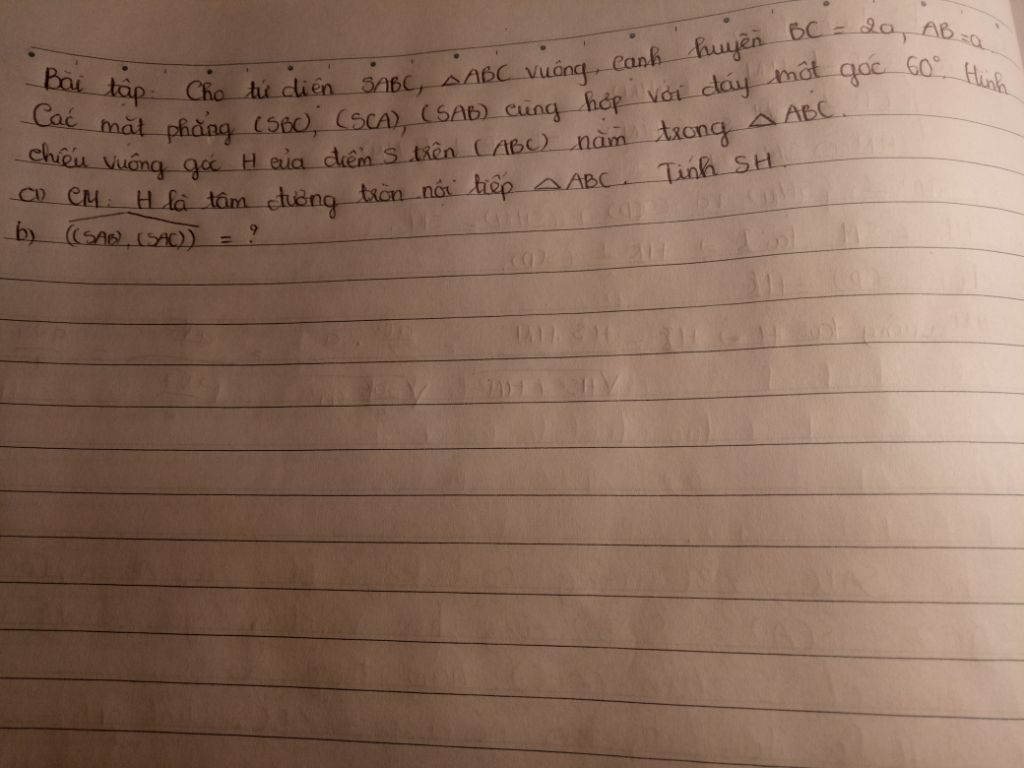 Bài tập: Cho tứ diện SABC, △ABC vuông, cạnh huyền BC = 2a, AB=a
Các mặt phẳng (SBC), (SCA), (SAB) cùng hợp với đáy một góc 60°. Hình
chiếu vuông góc H của điểm S trên (ABC) nằm trong △ABC.
a) CM: H là tâm đường tròn nội tiếp △ABC. Tính SH
b) ((SAB), (SAC)) = ?